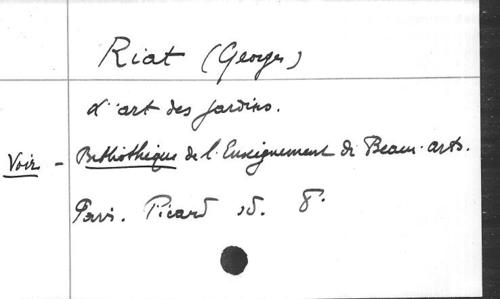 Riat (Georges)
L'art des jardins.
Voir - Bibliothèque de l'Enseignement de Beaux-arts.
Paris. Picard sd. 8°.